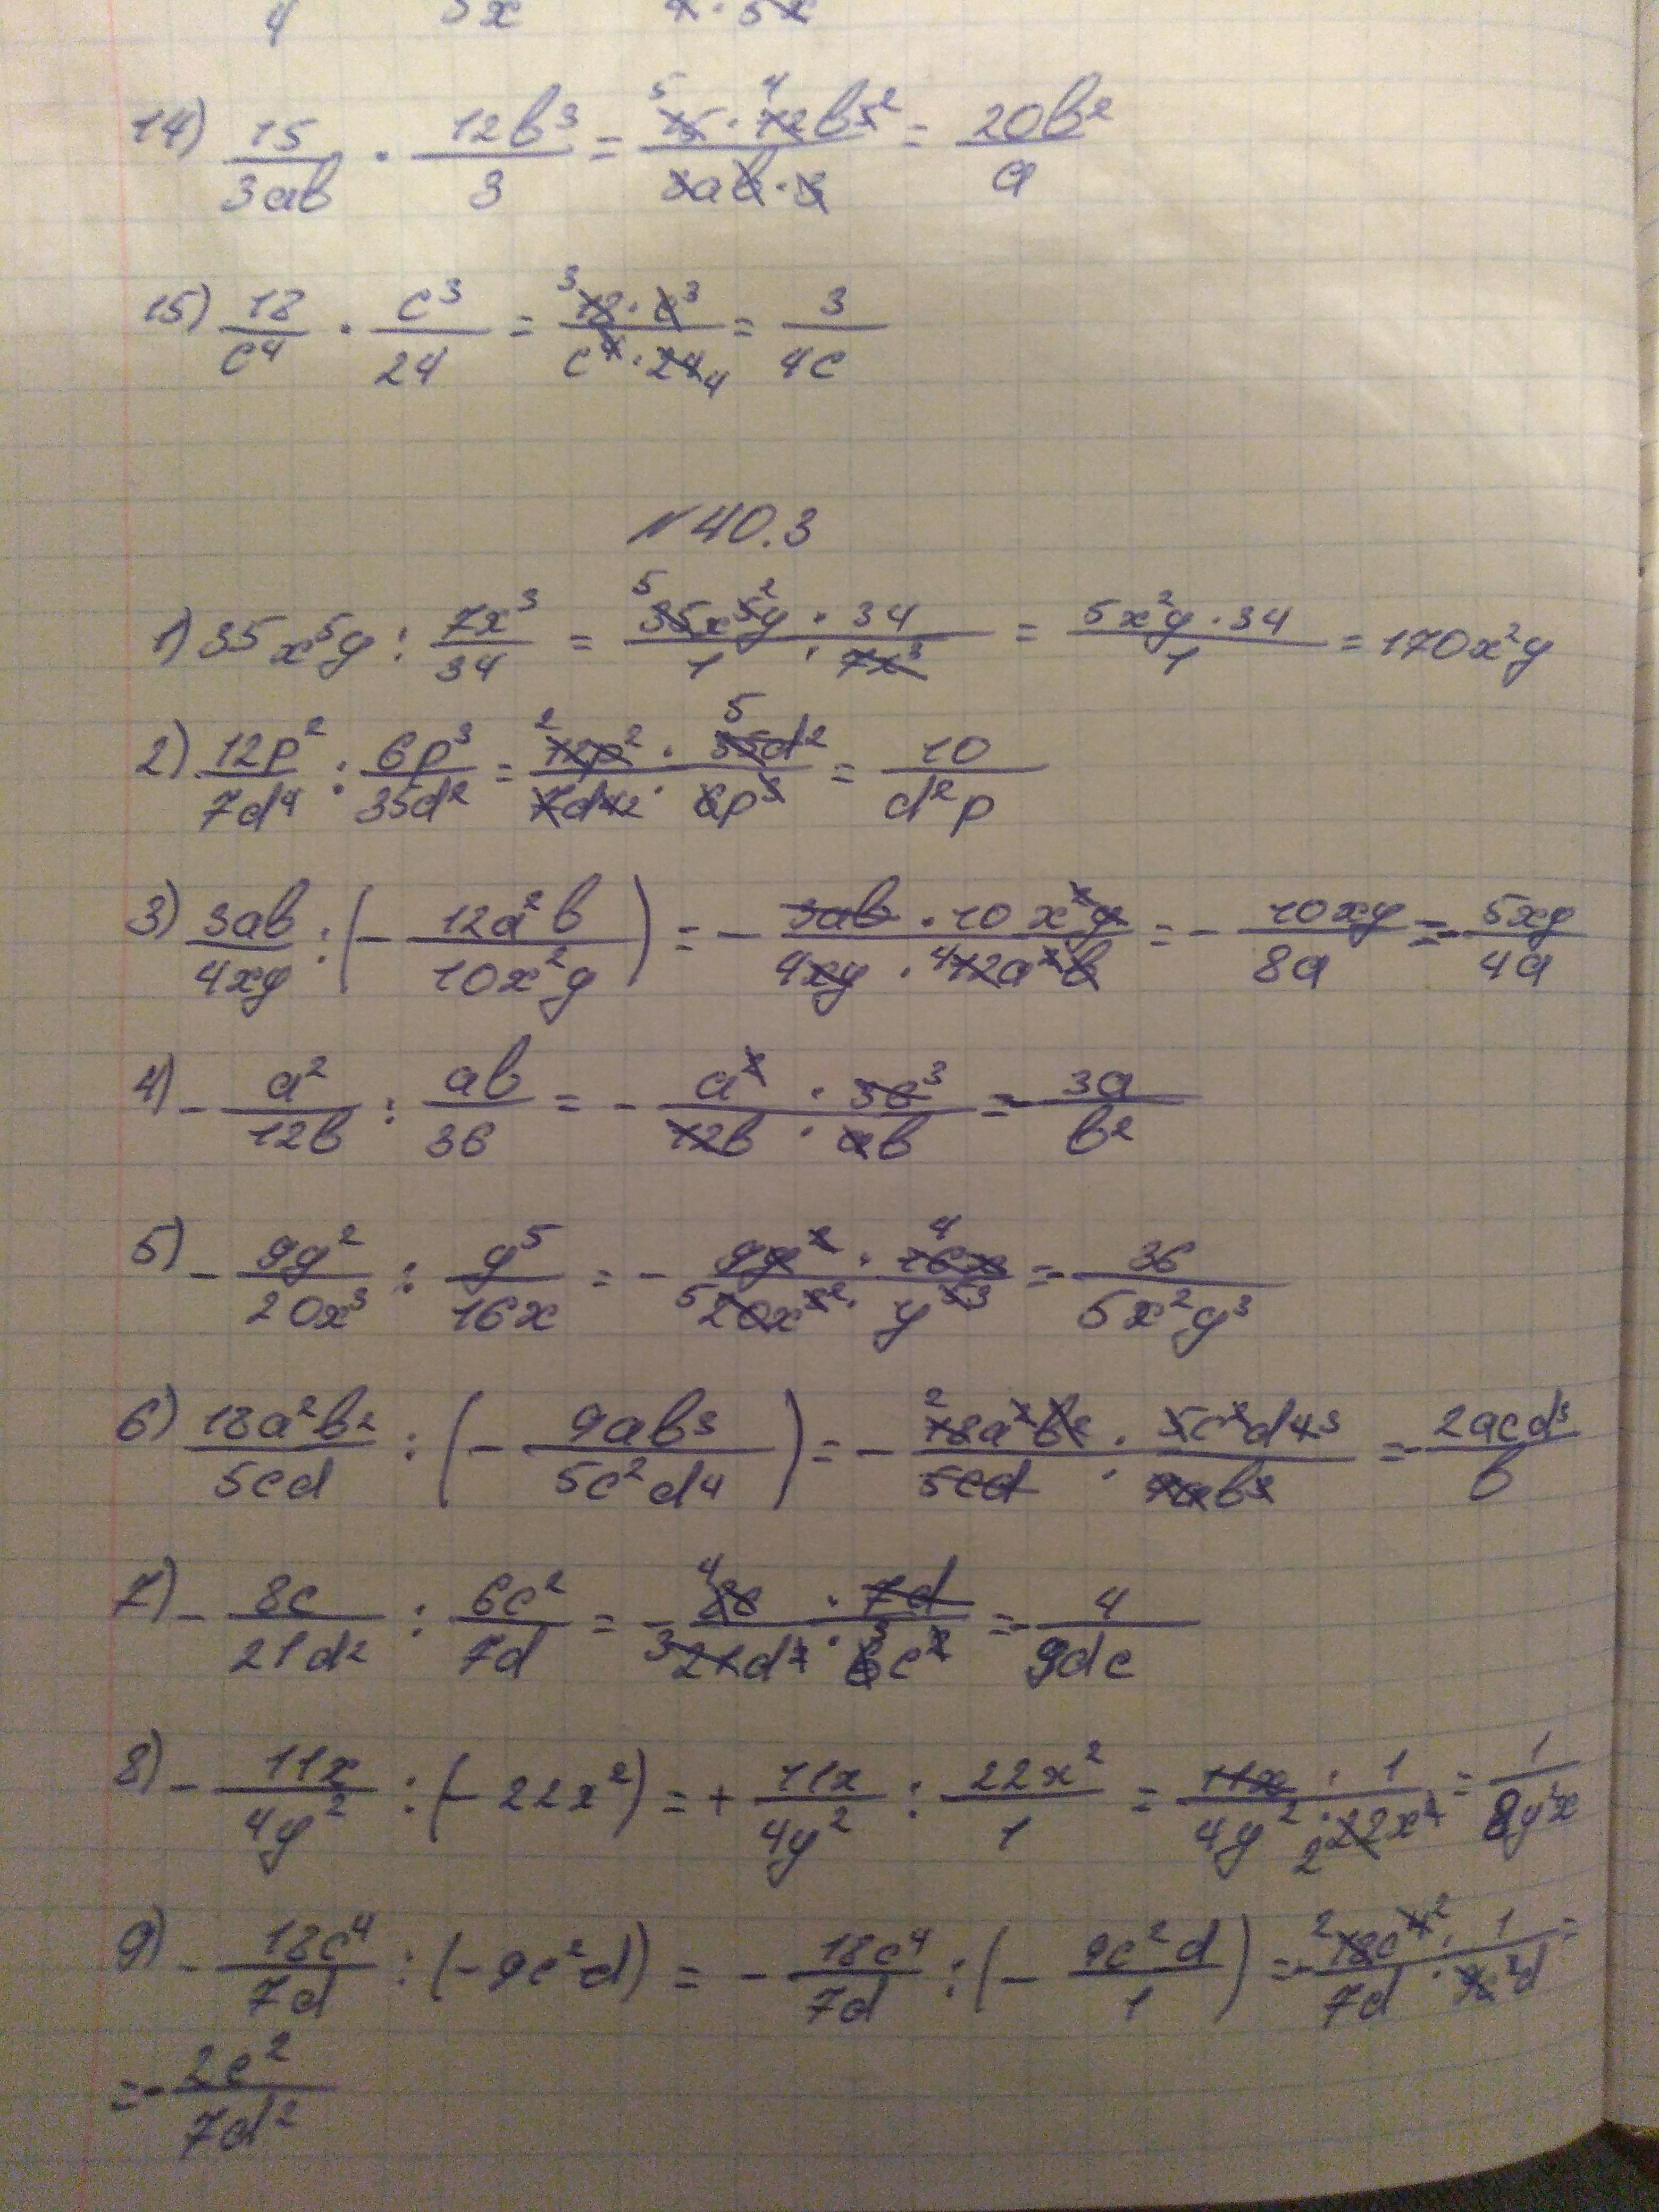 14) 15/3ab · 12b³/3 = ⁵15 · ⁴12b³²/3ab · 3 = 20b²/a
15) 18/c⁴ · c³/24 = ³18 · c³/c⁴ · 24₄ = 3/4c
№ 40.3
1) 35x⁵y : 7x³/34 = ⁵35x⁵²y · 34/1 · 7x³ = 5x²y · 34/1 = 170x²y
2) 12p²/7d⁴ : 6p³/35d² = ²12p² · ⁵35d²/7d⁴² · 6p³ = 10/d²p
3) 3ab/4xy : (- 12a²b/10x²y) = - 3ab · 10x²y/4xy · ⁴12a²b = - 10xy/8a = - 5xy/4a
4) - a²/12b : ab/36 = - a² · 36³/12b · ab = - 3a/b²
5) - 9y²/20x³ : y⁵/16x = - 9y² · ⁴16x/⁵20x³² · y⁵³ = - 36/5x²y³
6) 18a²b²/5cd : (- 9ab³/5c²d⁴) = - ²18a²b² · 5c²d⁴³/5cd · 9ab³ = - 2acd³/b
7) - 8c/21d² : 6c²/7d = - ⁴8c · 7d/³21d² · 6³c² = - 4/9dc
8) - 11x/4y² : (- 22x²) = + 11x/4y² : 22x²/1 = 11x · 1/4y² · ₂22x² = 1/8y²x
9) - 18c⁴/7d : (- 9c²d) = - 18c⁴/7d : (- 9c²d/1) = - ²18c⁴² · 1/7d · 9c²d =
= - 2c²/7d²